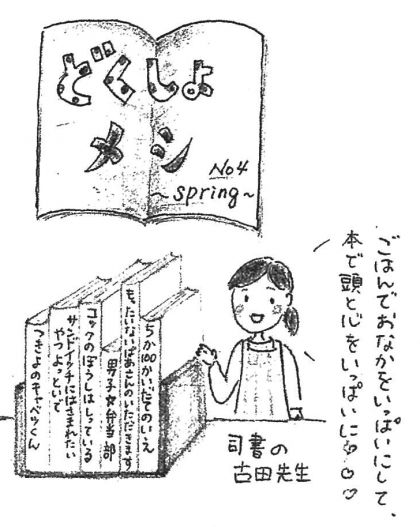 どくしょ
メシ
No4
~spring~
ごはんでおなかをいっぱいにして、
本で頭と心をいっぱいに♡♡♡
ちか100かいだてのいえ
もったいないばあさんのいただきます
男子☆弁当部
コックのぼうしはしっている
サンドイクチにはさまれたい
やつよっといで
つきよのキャベツくん
司書の
古田先生